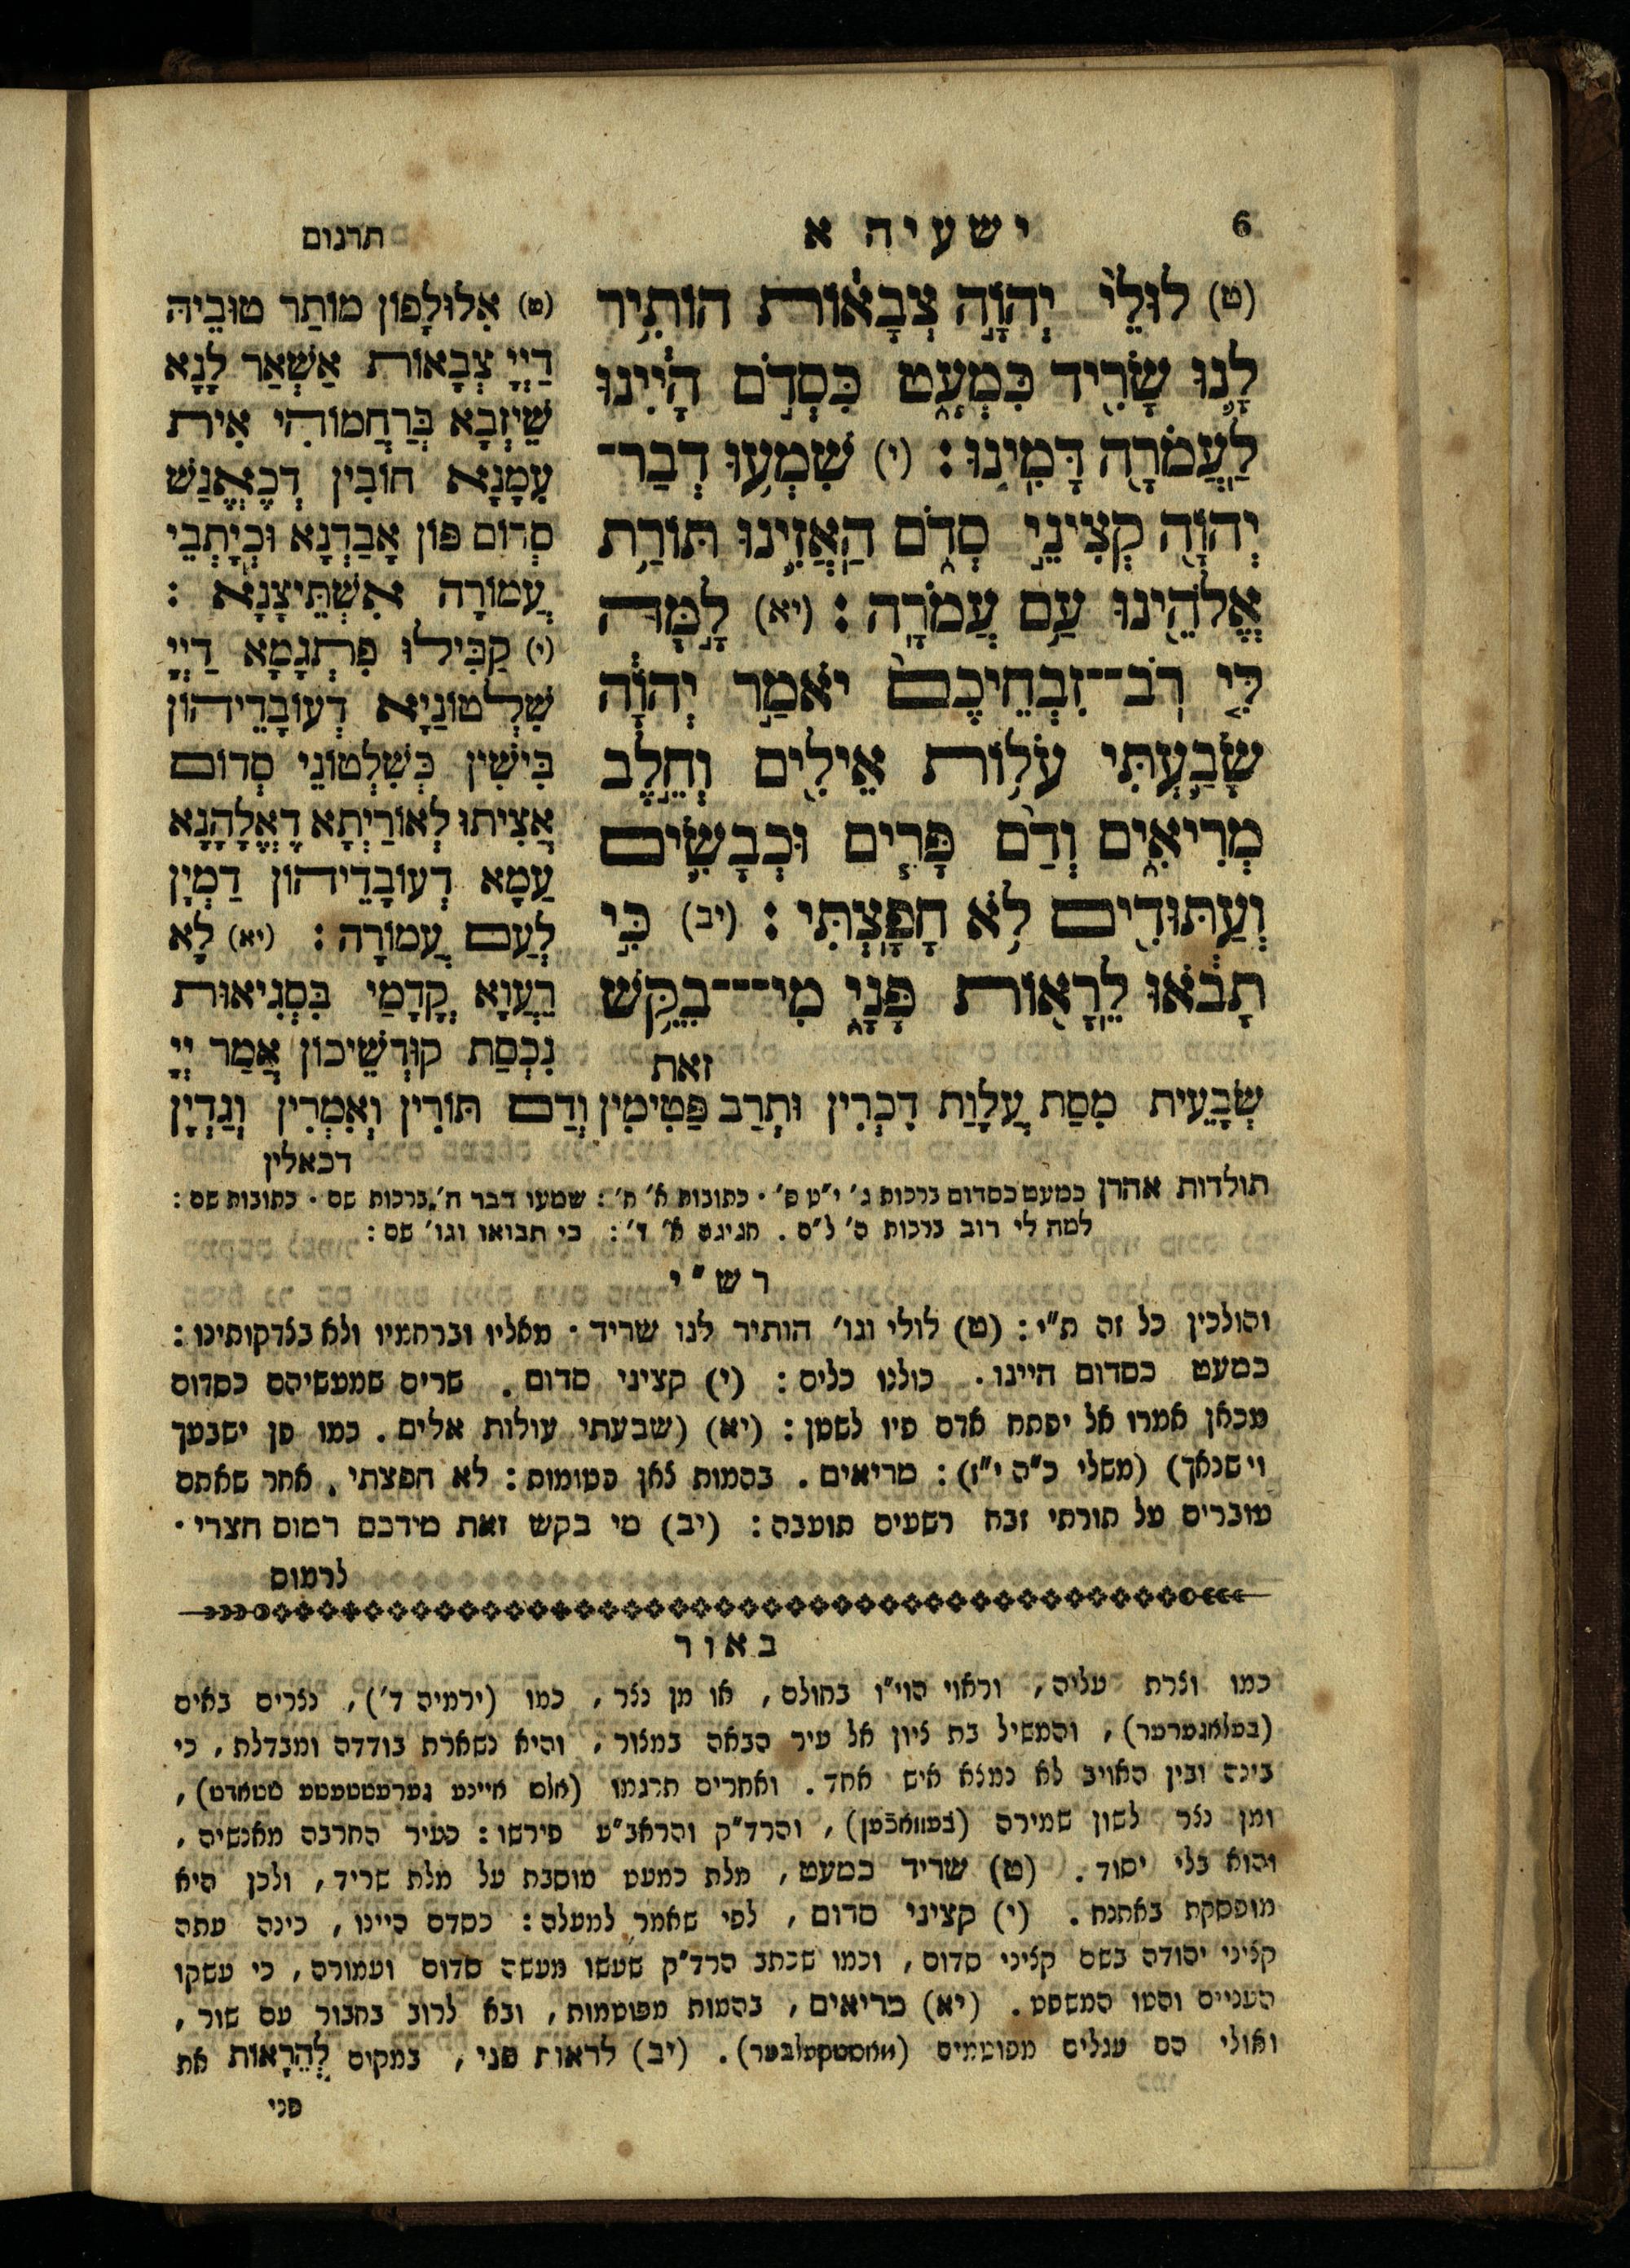 6
ישעיה א
תרגום
(ט) לוּלֵי֙ יְהוָ֣ה צְבָא֔וֹת הוֹתִ֥יר
לָ֛נוּ שָׂרִ֖יד כִּמְעָ֑ט כִּסְדֹ֣ם הָיִ֔ינוּ
לַעֲמֹרָ֖ה דָּמִֽינוּ׃ (י) שִׁמְע֥וּ דְבַר־
יְהוָ֖ה קְצִינֵ֣י סְדֹ֑ם הַאֲזִ֛ינוּ תּוֹרַ֥ת
אֱלֹהֵ֖ינוּ עַ֥ם עֲמֹרָֽה׃ (יא) לָ֣מָּה
לִּ֤י רֹב־זִבְחֵיכֶם֙ יֹאמַ֣ר יְהוָ֔ה
שָׂבַ֛עְתִּי עֹל֥וֹת אֵילִ֖ים וְחֵ֣לֶב
מְרִיאִ֑ים וְדַ֨ם פָּרִ֧ים וּכְבָשִׂ֛ים
וְעַתּוּדִ֖ים לֹ֥א חָפָֽצְתִּי׃ (יב) כִּ֣י
תָבֹ֔אוּ לֵרָא֖וֹת פָּנָ֑י מִי־בִקֵּ֥שׁ
זאת
(ט) אִלוּלָפוֹן מוֹתַר טוּבֵיהּ
דַיְיָ צְבָאוֹת אַשְׁאַר לָנָא
שֵׁיזְבָא בְּרַחֲמוֹהִי אִית
עִמָנָא חוֹבִין דְכֶאֱנַשׁ
סְדוֹם פּוֹן אָבַדְנָא וּכְיָתְבֵי
עֲמוֹרָה אִשְׁתֵּיצָנָא :
(י) קַבִּילוּ פִּתְגָמָא דַיְיָ
שִׁלְטוֹנַיָא דְעוֹבָדֵיהוֹן
בִּישִׁין כְּשִׁלְטוֹנֵי סְדוֹם
אֲצִיתוּ לְאוֹרַיְתָא דֶאֱלָהָנָא
עַמָא דְעוֹבָדֵיהוֹן דַמְיָן
לְעַם עֲמוֹרָה : (יא) לָא
רַעֲוָא קֳדָמַי בִּסְגִיאוּת
נִכְסַת קוּדְשֵׁיכוֹן אֲמַר יְיָ
שְׂבָעֵית מִסַת עֲלָוַת דִכְרִין וּתְרַב פַּטִימִין וְדַם תּוֹרִין וְאִמְרִין וְגַדְיָן
דכאלין
תולדות אהרן כמעט כסדום ברכות ג׳ י״ט ס׳ . כתובות א׳ ח׳ : שמעו דבר ה׳ ברכות שם . כתובות שם :
למה לי רוב ברכות ס׳ ל״ס . חגיגה א׳ ד׳ : כי תבואו וגו׳ שם :
רש״י
והולכין כל זה ת״י : (ט) לולי וגו׳ הותיר לנו שריד . מאליו וברחמיו ולא בצדקותינו :
כמעט כסדום היינו . כולנו כלים : (י) קציני סדום . שרים שמעשיהם כסדום
מכאן אמרו אל יפתח אדם פיו לשטן : (יא) (שבעתי עולות אלים . כמו פן ישבעך
וישנאך) (משלי כ״ה י״ז) : מריאים . בהמות צאן פטומות : לא חפצתי . אחר שאתם
עוברים על תורתי זבח רשעים תועבה : (יב) מי בקש זאת מידכם רמוס חצרי .
לרמוס
באור
כמו וצרת עליה , וראוי הוי״ו בחולם , או מן נצר , כמו (ירמיה ד׳) , נצרים באים
(בעלאגערער) , והמשיל בת ציון אל עיר הבאה במצור , והיא נשארת בודדה ומבדלת , כי
בינה ובין האויב לא נמצא איש אחד . ואחרים תרגמו (אלס איינע גערעטטעטע שטאדט) ,
ומן נצר לשון שמירה (בעוואכֿען) , והרד״ק והראב״ע פירשו : כעיר החרבה מאנשיה ,
והוא בלי יסוד . (ט) שריד כמעט , מלת כמעט מוסבת על מלת שריד , ולכן היא
מופסקת באתנח . (י) קציני סדום , לפי שאמר למעלה : כסדם היינו , כינה עתה
קציני יהודה בשם קציני סדום , וכמו שכתב הרד״ק שעשו מעשה סדום ועמורה , כי עשקו
העניים והטו המשפט . (יא) מריאים , בהמות מפוטמות , ובא לרוב בחבור עם שור ,
ואולי הם עגלים מפוטמים (מאסטקעלבער) . (יב) לראות פני , במקום לְהֵרָאוֹת את
פני